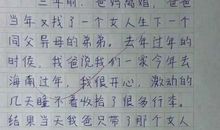 三年前，爸妈离婚，爸
当年又找了一个女人生下一个
同父异母的弟弟。去年过年的
时候，我爸说我们一家今年去
海南过年，我很开心，激动的
几天睡不着收拾了很多行李，
结果当天我爸只带了那个女人